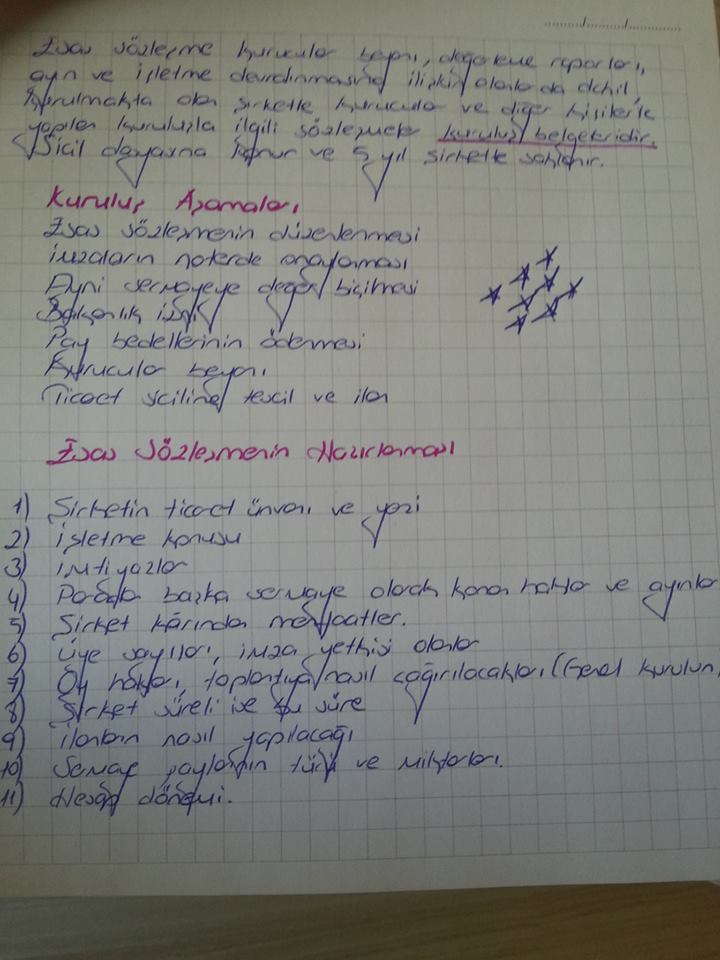 Esas sözleşme kurucular beyanı, değerleme raporları,
ayın ve işletme devralınmasına ilişkin olanlar da dahil,
kurulmakta olan şirketle kurucular ve diğer kişilerle
yapılan kuruluşla ilgili sözleşmeler kuruluş belgeleridir.
Sicil dosyasına konur ve 5 yıl şirkette saklanır.
Kuruluş Aşamaları
Esas sözleşmenin düzenlenmesi
imzaların noterde onaylanması
Ayni sermayeye değer biçilmesi
Bakanlık izni
Pay bedellerinin ödenmesi
Kurucular beyanı
Ticaret siciline tescil ve ilan
Esas Sözleşmenin Hazırlanması
1) Şirketin ticaret ünvanı ve yeri
2) işletme konusu
3) imtiyazlar
4) Paradan başka sermaye olarak konan haklar ve ayınlar
5) Şirket kârından menfaatler.
6) Üye sayıları, imza yetkisi olanlar
7) Oy hakları, toplantıya nasıl çağırılacakları (Genel kurulun,
8) Şirket süreli ise bu süre
9) ilanların nasıl yapılacağı
10) Sermaye paylarının türü ve miktarları.
11) Hesap dönemi.